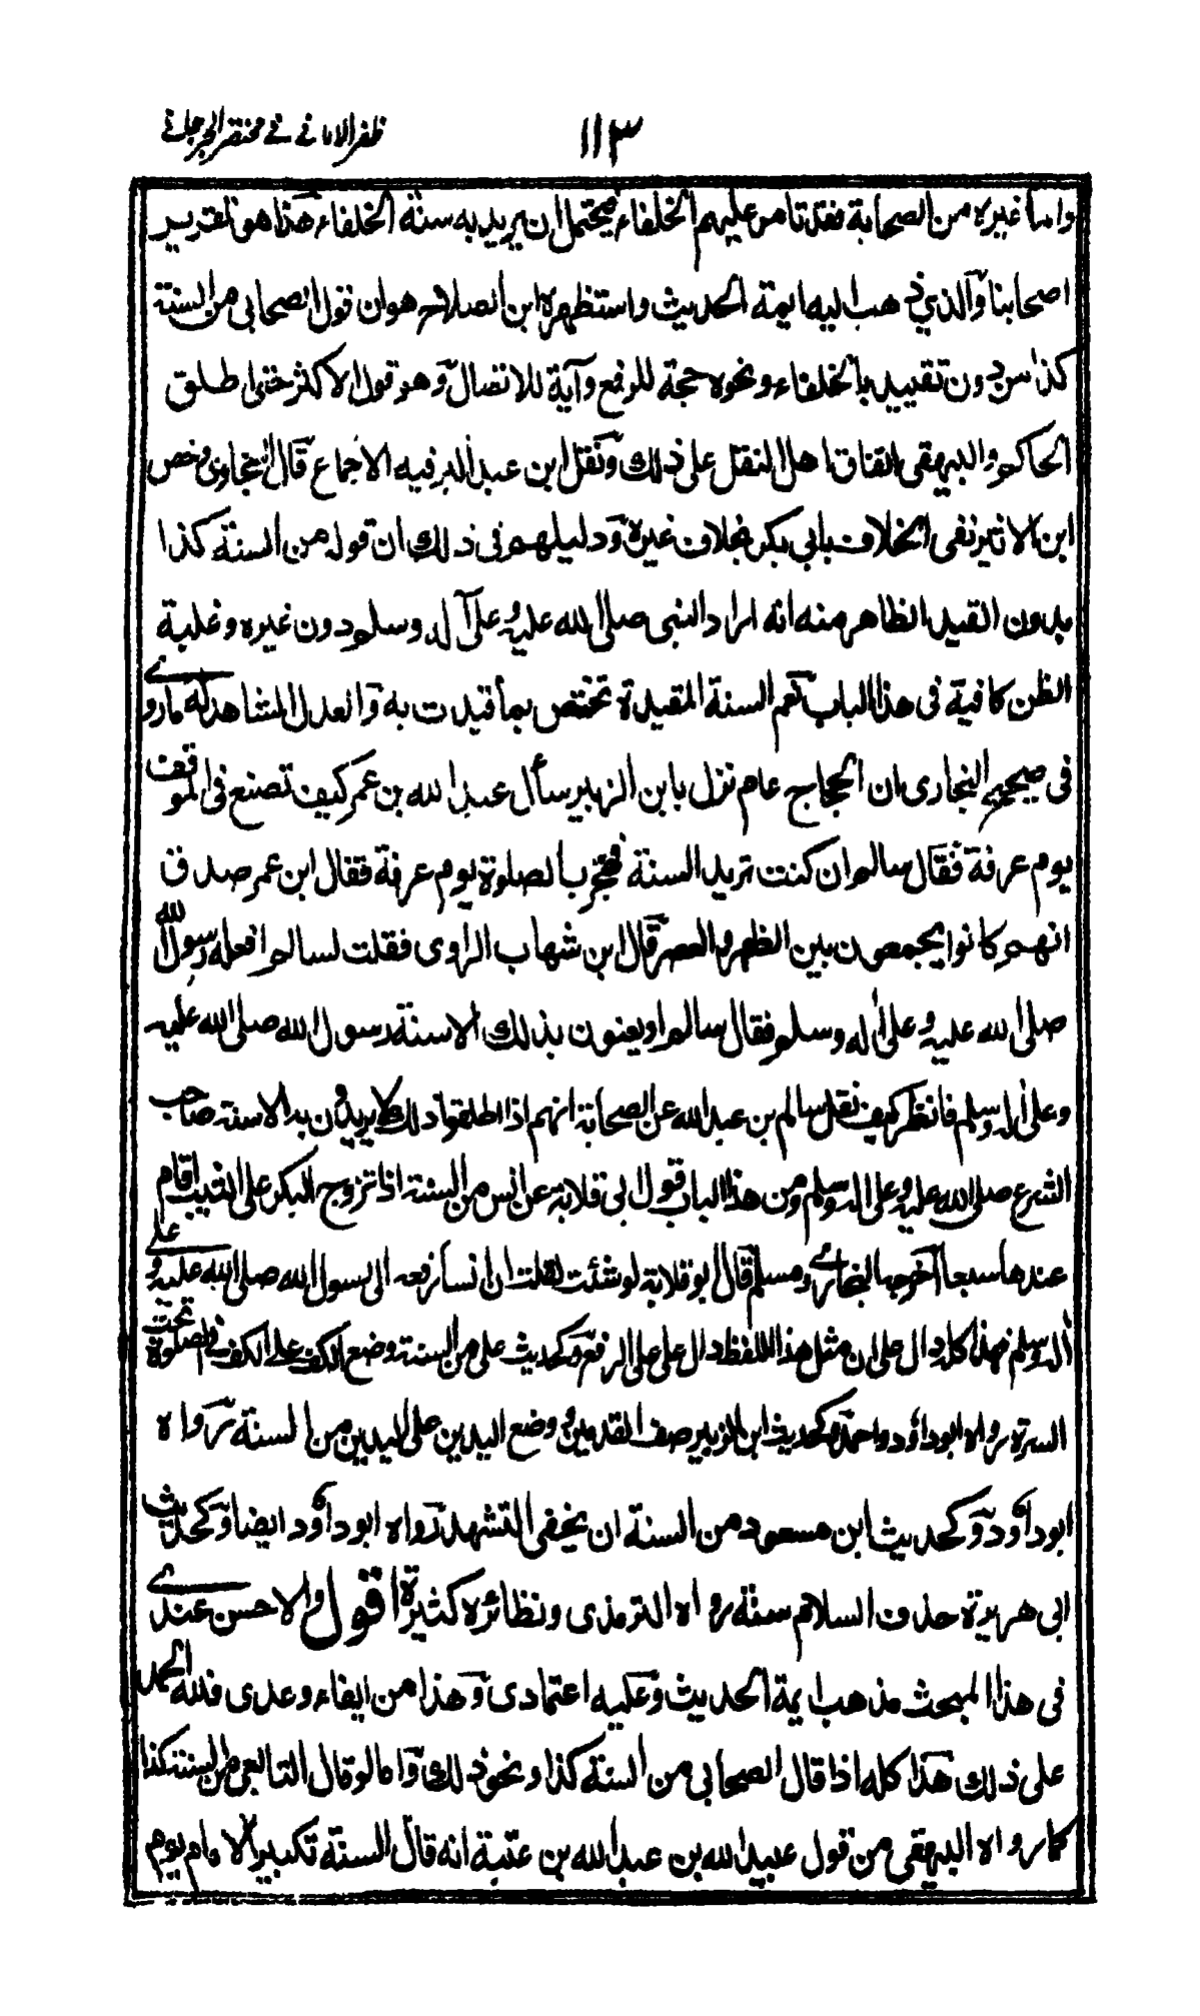 ظفر الاماني في مختصر الجرجاني
١١٣
واما غيره من الصحابة فقد تامر عليهم الخلفاء فيحتمل ان يريد به سنة الخلفاء هذا هو تقرير
اصحابنا والذي ذهب اليه ايمة الحديث واستظهره ابن الصلاح هو ان قول الصحابي من السنة
كذا من دون تقييد بالخلفاء ونحوه حجة للرفع وآية للاتصال وهو قول الاكثر حتى اطلق
الحاكم والبيهقي اتفاق اهل النقل على ذلك ونقل ابن عبد البر فيه الاجماع قال السخاوي وخص
ابن الاثير نفى الخلاف بابي بكر بخلاف غيره ودليلهم في ذلك ان قوله من السنة كذا
بدون القيد الظاهر منه انه اراد النبي صلى الله عليه وعلى آله وسلم دون غيره وغلبة
الظن كافية في هذا الباب نعم السنة المقيدة تختص بما قيدت به والعدل المشاهد له ما روى
في صحيح البخاري ان الحجاج عام نزل بابن الزبير سأل عبد الله بن عمر كيف تصنع في الموقف
يوم عرفة فقال سالم ان كنت تريد السنة فهجر بالصلوة يوم عرفة فقال ابن عمر صدق
انهم كانوا يجمعون بين الظهر والعصر قال ابن شهاب الراوى فقلت لسالم افعله رسول الله
صلى الله عليه وعلى اله وسلم فقال سالم او يعنون بذلك الا سنة رسول الله صلى الله عليه
وعلى اله وسلم فانظر كيف نقل سالم بن عبد الله عن الصحابة انهم اذا اطلقوا ذلك لا يريدون به الا سنة صاحب
الشرع صلى الله عليه وعلى اله وسلم ومن هذا الباب قول ابي قلابة عن انس من السنة اذا تزوج البكر على الثيب اقام
عندها سبعا اخرجه البخاري ومسلم قال ابو قلابة لو شئت لقلت ان انسا رفعه الى رسول الله صلى الله عليه وعلى
اله وسلم فهذا كله دال على ان مثل هذا اللفظ دال على الرفع وكحديث على من السنة وضع الكف على الكف في الصلوة تحت
السرة رواه ابو داؤد واحمد وكحديث ابن الزبير صف القدمين ووضع اليدين على اليدين من السنة رواه
ابو داؤد وكحديث ابن مسعود من السنة ان يخفى التشهد رواه ابو داؤد ايضا وكحديث
ابى هريرة حذف السلام سنة رواه الترمذى ونظائره كثيرة اقول والاحسن عندى
فى هذا المبحث مذهب ايمة الحديث وعليه اعتمادى وهذا من ايفاء وعدى فلله الحمد
على ذلك هذا كله اذا قال الصحابي من السنة كذا ونحو ذلك واما لو قال التابعى من السنة كذا
كما رواه البيهقى من قول عبيد الله بن عبد الله بن عتبة انه قال السنة تكبير الامام يوم